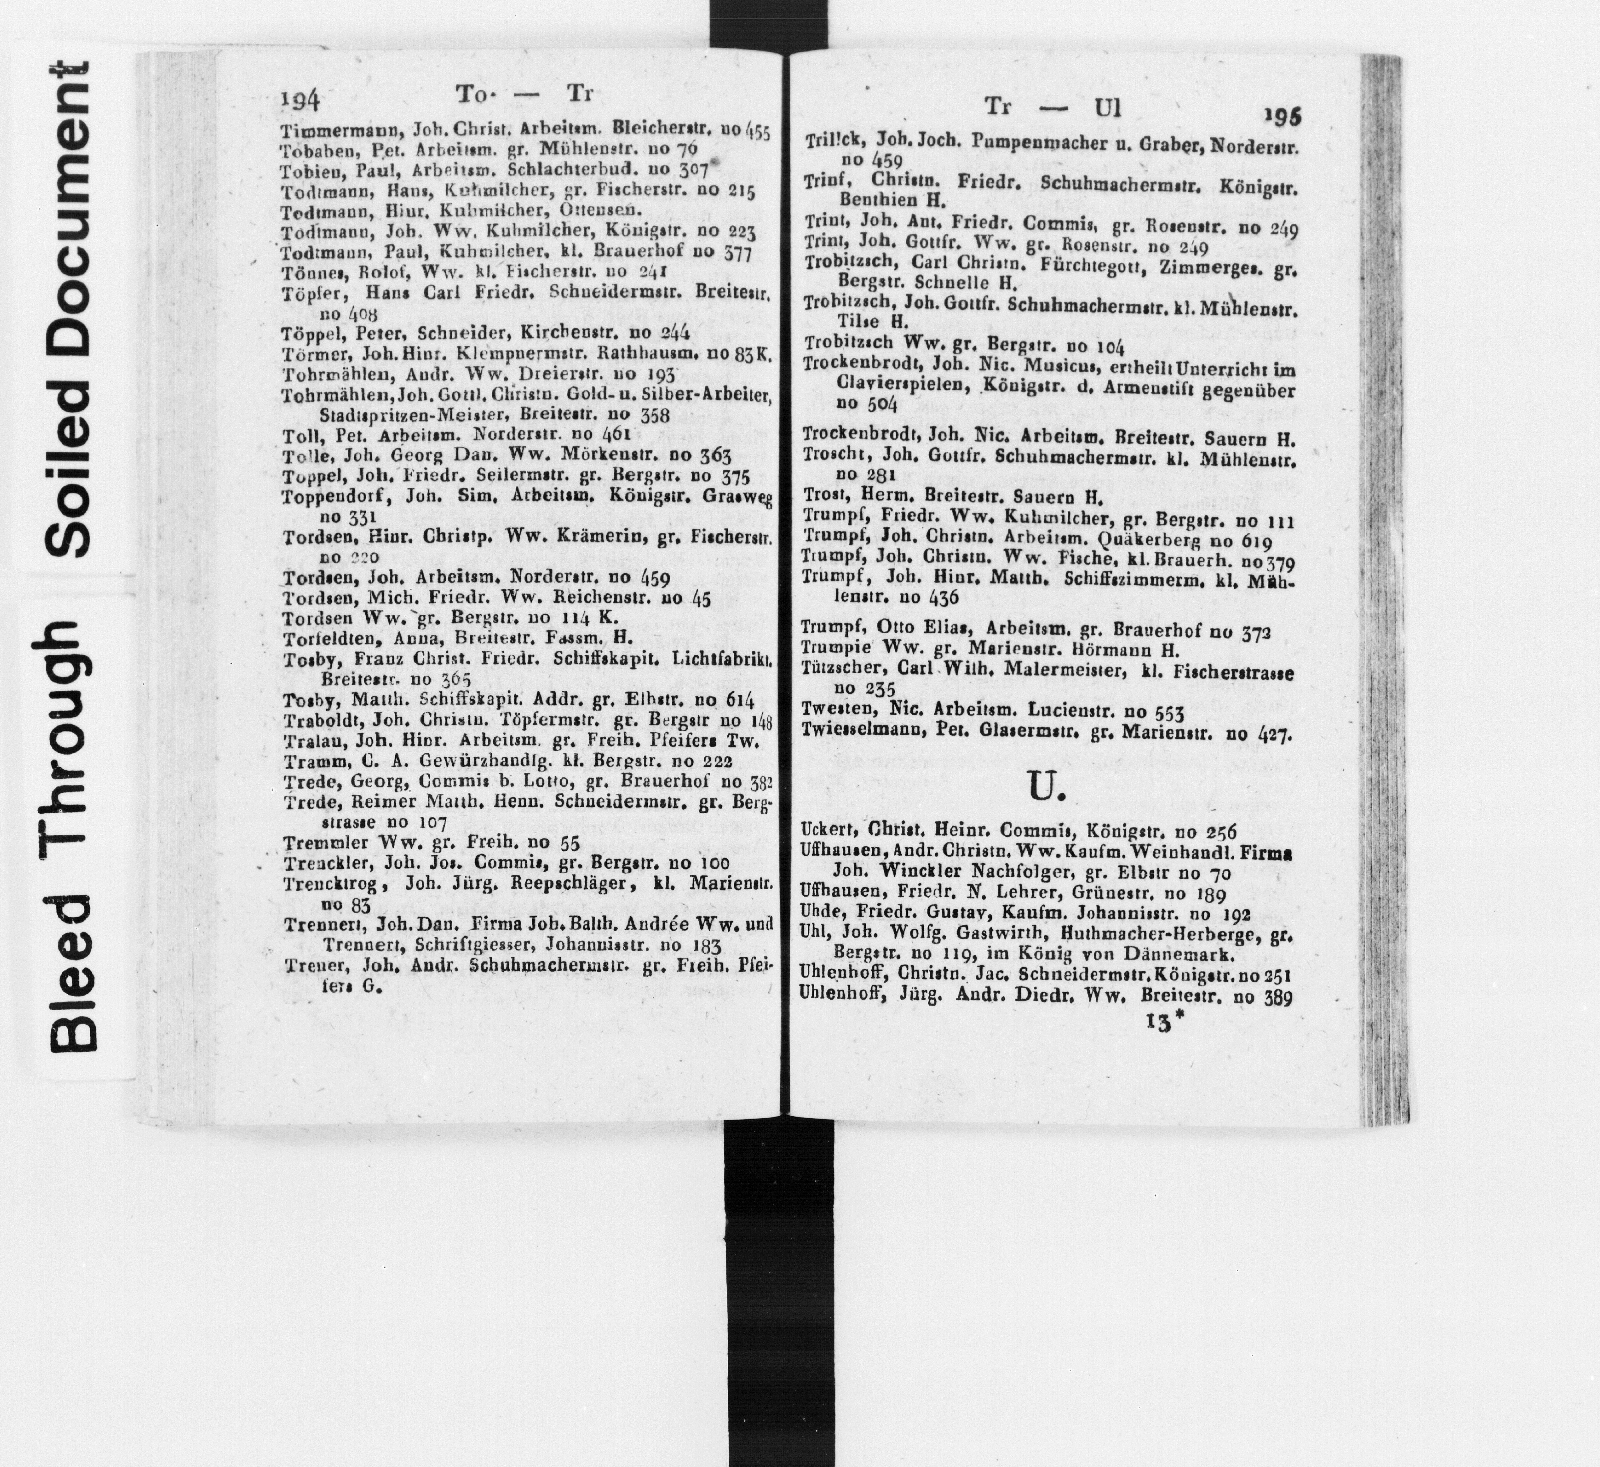 Soiled Document
Bleed Through
194 To — Tr
Timmermann, Joh. Christ. Arbeitsm. Bleicherstr. no 455
Tobaben, Pet. Arbeitsm. gr. Mühlenstr. no 76
Tobien, Paul, Arbeitsm. Schlachterbud. no 307
Todtmann, Hans, Kuhmilcher, gr. Fischerstr. no 215
Todtmann, Hinr. Kuhmilcher, Ottensen.
Todtmann, Joh. Ww. Kuhmilcher, Königstr. no 223
Todtmann, Paul, Kuhmilcher, kl. Brauerhof no 377
Tönnes, Rolof, Ww. kl. Fischerstr. no 241
Töpfer, Hans Carl Friedr. Schneidermstr. Breitestr.
no 408
Töppel, Peter, Schneider, Kirchenstr. no 244
Törmer, Joh. Hinr. Klempnermstr. Rathhausm. no 83 K.
Tohrmählen, Andr. Ww. Dreierstr. no 193
Tohrmählen, Joh. Gottl. Christn. Gold- u. Silber-Arbeiter,
Stadtspritzen-Meister, Breitestr. no 358
Toll, Pet. Arbeitsm. Norderstr. no 461
Tolle, Joh. Georg Dan. Ww. Mörkenstr. no 363
Toppel, Joh. Friedr. Seilermstr. gr. Bergstr. no 375
Toppendorf, Joh. Sim. Arbeitsm. Königstr. Grasweg
no 331
Tordsen, Hinr. Christp. Ww. Krämerin, gr. Fischerstr.
no 220
Tordsen, Joh. Arbeitsm. Norderstr. no 459
Tordsen, Mich. Friedr. Ww. Reichenstr. no 45
Tordsen Ww. gr. Bergstr. no 114 K.
Torfeldten, Anna, Breitestr. Fassm. H.
Tosby, Franz Christ. Friedr. Schiffskapit. Lichtfabrikt.
Breitestr. no 365
Tosby, Matth. Schiffskapit. Addr. gr. Elbstr. no 614
Traboldt, Joh. Christn. Töpfermstr. gr. Bergstr no 148
Tralau, Joh. Hinr. Arbeitsm. gr. Freih. Pfeifers Tw.
Tramm, C. A. Gewürzhandlg. kl. Bergstr. no 222
Trede, Georg, Commis b. Lotto, gr. Brauerhof no 382
Trede, Reimer Matth. Henn. Schneidermstr. gr. Berg-
strasse no 107
Tremmler Ww. gr. Freih. no 55
Trenckler, Joh. Jos. Commis, gr. Bergstr. no 100
Trencktrog, Joh. Jürg. Reepschläger, kl. Marienstr.
no 83
Trennert, Joh. Dan. Firma Joh. Balth. Andrée Ww. und
Trennert, Schriftgiesser, Johannisstr. no 183
Treuer, Joh. Andr. Schuhmachermstr. gr. Freih. Pfei-
fers G.
Tr — Ul 195
Trilick, Joh. Joch. Pumpenmacher u. Graber, Norderstr.
no 459
Trinf, Christn. Friedr. Schuhmachermstr. Königstr.
Benthien H.
Trint, Joh. Ant. Friedr. Commis, gr. Rosenstr. no 249
Trint, Joh. Gottfr. Ww. gr. Rosenstr. no 249
Trobitzsch, Carl Christn. Fürchtegott, Zimmerges. gr.
Bergstr. Schnelle H.
Trobitzsch, Joh. Gottfr. Schuhmachermstr. kl. Mühlenstr.
Tilse H.
Trobitzsch Ww. gr. Bergstr. no 104
Trockenbrodt, Joh. Nic. Musicus, ertheilt Unterricht im
Clavierspielen, Königstr. d. Armenstift gegenüber
no 504
Trockenbrodt, Joh. Nic. Arbeitsm. Breitestr. Sauern H.
Troscht, Joh. Gottfr. Schuhmachermstr. kl. Mühlenstr.
no 281
Trost, Herm. Breitestr. Sauern H.
Trumpf, Friedr. Ww. Kuhmilcher, gr. Bergstr. no 111
Trumpf, Joh. Christn. Arbeitsm. Quäkerberg no 619
Trumpf, Joh. Christn. Ww. Fische, kl. Brauerh. no 379
Trumpf, Joh. Hinr. Matth. Schiffszimmerm. kl. Müh-
lenstr. no 436
Trumpf, Otto Elias, Arbeitsm. gr. Brauerhof no 372
Trumpie Ww. gr. Marienstr. Hörmann H.
Tützscher, Carl Wilh. Malermeister, kl. Fischerstrasse
no 235
Twesten, Nic. Arbeitsm. Lucienstr. no 553
Twiesselmann, Pet. Glasermstr. gr. Marienstr. no 427.
U.
Uckert, Christ. Heinr. Commis, Königstr. no 256
Uffhausen, Andr. Christn. Ww. Kaufm. Weinhandl. Firma
Joh. Winckler Nachfolger, gr. Elbstr no 70
Uffhausen, Friedr. N. Lehrer, Grünestr. no 189
Uhde, Friedr. Gustav, Kaufm. Johannisstr. no 192
Uhl, Joh. Wolfg. Gastwirth, Huthmacher-Herberge, gr.
Bergstr. no 119, im König von Dännemark.
Uhlenhoff, Christn. Jac. Schneidermstr. Königstr. no 251
Uhlenhoff, Jürg. Andr. Diedr. Ww. Breitestr. no 389
13*